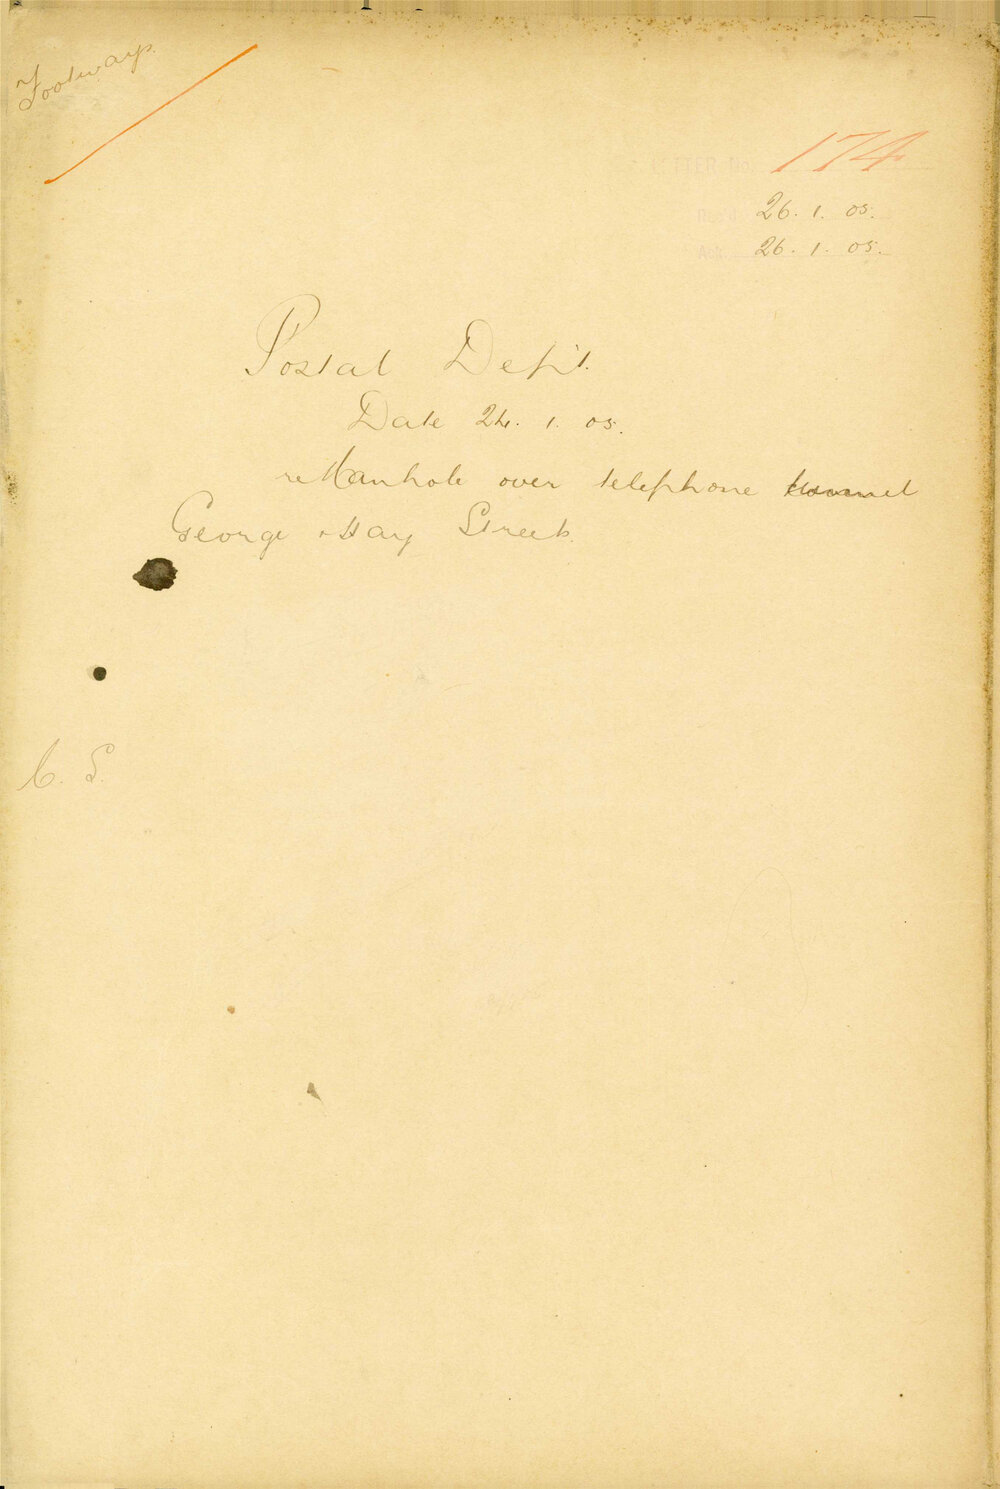 Footways.
LETTER No. 174
Rec'd 26. 1. 05.
Ack. 26. 1. 05.
Postal Dep't.
Date 24. 1. 05.
re Manhole over telephone tunnel
George & Hay Streets.
C. S.